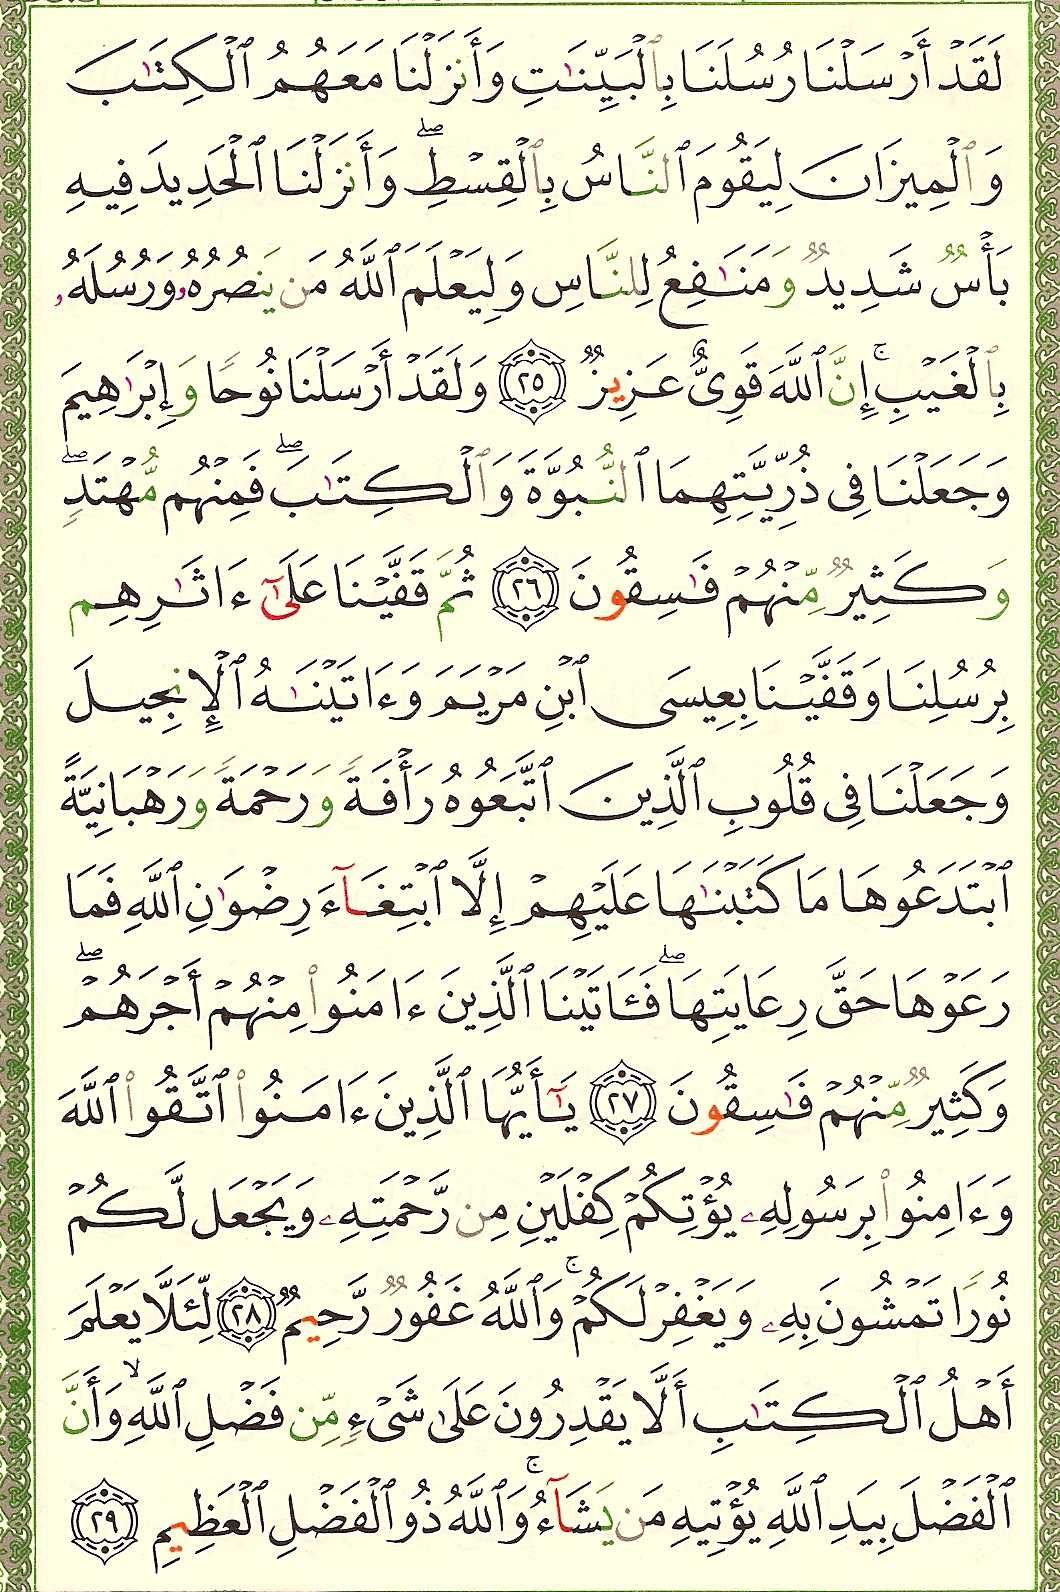 لَقَدْ أَرْسَلْنَا رُسُلَنَا بِٱلْبَيِّنَٰتِ وَأَنزَلْنَا مَعَهُمُ ٱلْكِتَٰبَ
وَٱلْمِيزَانَ لِيَقُومَ ٱلنَّاسُ بِٱلْقِسْطِ ۖ وَأَنزَلْنَا ٱلْحَدِيدَ فِيهِ
بَأْسٌ شَدِيدٌ وَمَنَٰفِعُ لِلنَّاسِ وَلِيَعْلَمَ ٱللَّهُ مَن يَنصُرُهُۥ وَرُسُلَهُۥ
بِٱلْغَيْبِ ۚ إِنَّ ٱللَّهَ قَوِىٌّ عَزِيزٌ ٢٥ وَلَقَدْ أَرْسَلْنَا نُوحًا وَإِبْرَٰهِيمَ
وَجَعَلْنَا فِى ذُرِّيَّتِهِمَا ٱلنُّبُوَّةَ وَٱلْكِتَٰبَ ۖ فَمِنْهُم مُّهْتَدٍ ۖ
وَكَثِيرٌ مِّنْهُمْ فَٰسِقُونَ ٢٦ ثُمَّ قَفَّيْنَا عَلَىٰٓ ءَاثَٰرِهِم
بِرُسُلِنَا وَقَفَّيْنَا بِعِيسَى ٱبْنِ مَرْيَمَ وَءَاتَيْنَٰهُ ٱلْإِنجِيلَ
وَجَعَلْنَا فِى قُلُوبِ ٱلَّذِينَ ٱتَّبَعُوهُ رَأْفَةً وَرَحْمَةً وَرَهْبَانِيَّةً
ٱبْتَدَعُوهَا مَا كَتَبْنَٰهَا عَلَيْهِمْ إِلَّا ٱبْتِغَآءَ رِضْوَٰنِ ٱللَّهِ فَمَا
رَعَوْهَا حَقَّ رِعَايَتِهَا ۖ فَـَٔاتَيْنَا ٱلَّذِينَ ءَامَنُوا۟ مِنْهُمْ أَجْرَهُمْ ۖ
وَكَثِيرٌ مِّنْهُمْ فَٰسِقُونَ ٢٧ يَٰٓأَيُّهَا ٱلَّذِينَ ءَامَنُوا۟ ٱتَّقُوا۟ ٱللَّهَ
وَءَامِنُوا۟ بِرَسُولِهِۦ يُؤْتِكُمْ كِفْلَيْنِ مِن رَّحْمَتِهِۦ وَيَجْعَل لَّكُمْ
نُورًا تَمْشُونَ بِهِۦ وَيَغْفِرْ لَكُمْ ۚ وَٱللَّهُ غَفُورٌ رَّحِيمٌ ٢٨ لِّئَلَّا يَعْلَمَ
أَهْلُ ٱلْكِتَٰبِ أَلَّا يَقْدِرُونَ عَلَىٰ شَىْءٍ مِّن فَضْلِ ٱللَّهِ ۙ وَأَنَّ
ٱلْفَضْلَ بِيَدِ ٱللَّهِ يُؤْتِيهِ مَن يَشَآءُ ۚ وَٱللَّهُ ذُو ٱلْفَضْلِ ٱلْعَظِيمِ ٢٩